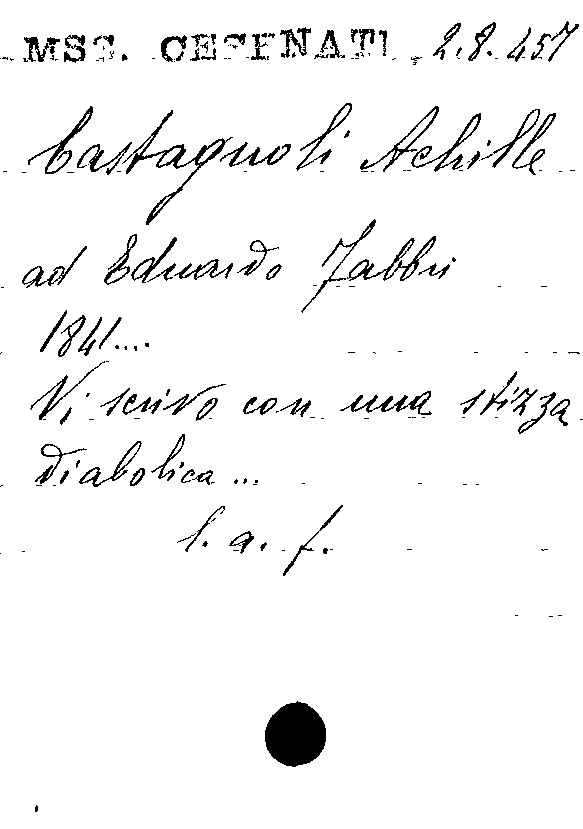 MSS. CESENATI 2.8.457
Castagnoli Achille
ad Eduardo Fabbri
1841....
Vi scrivo con una stizza
diabolica...
l. a. f.